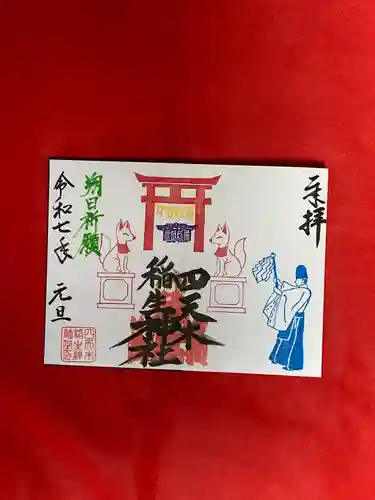 奉拝
四天木
稲生神社
朔日祈願
令和七年 元旦
四天木
稲生神
社